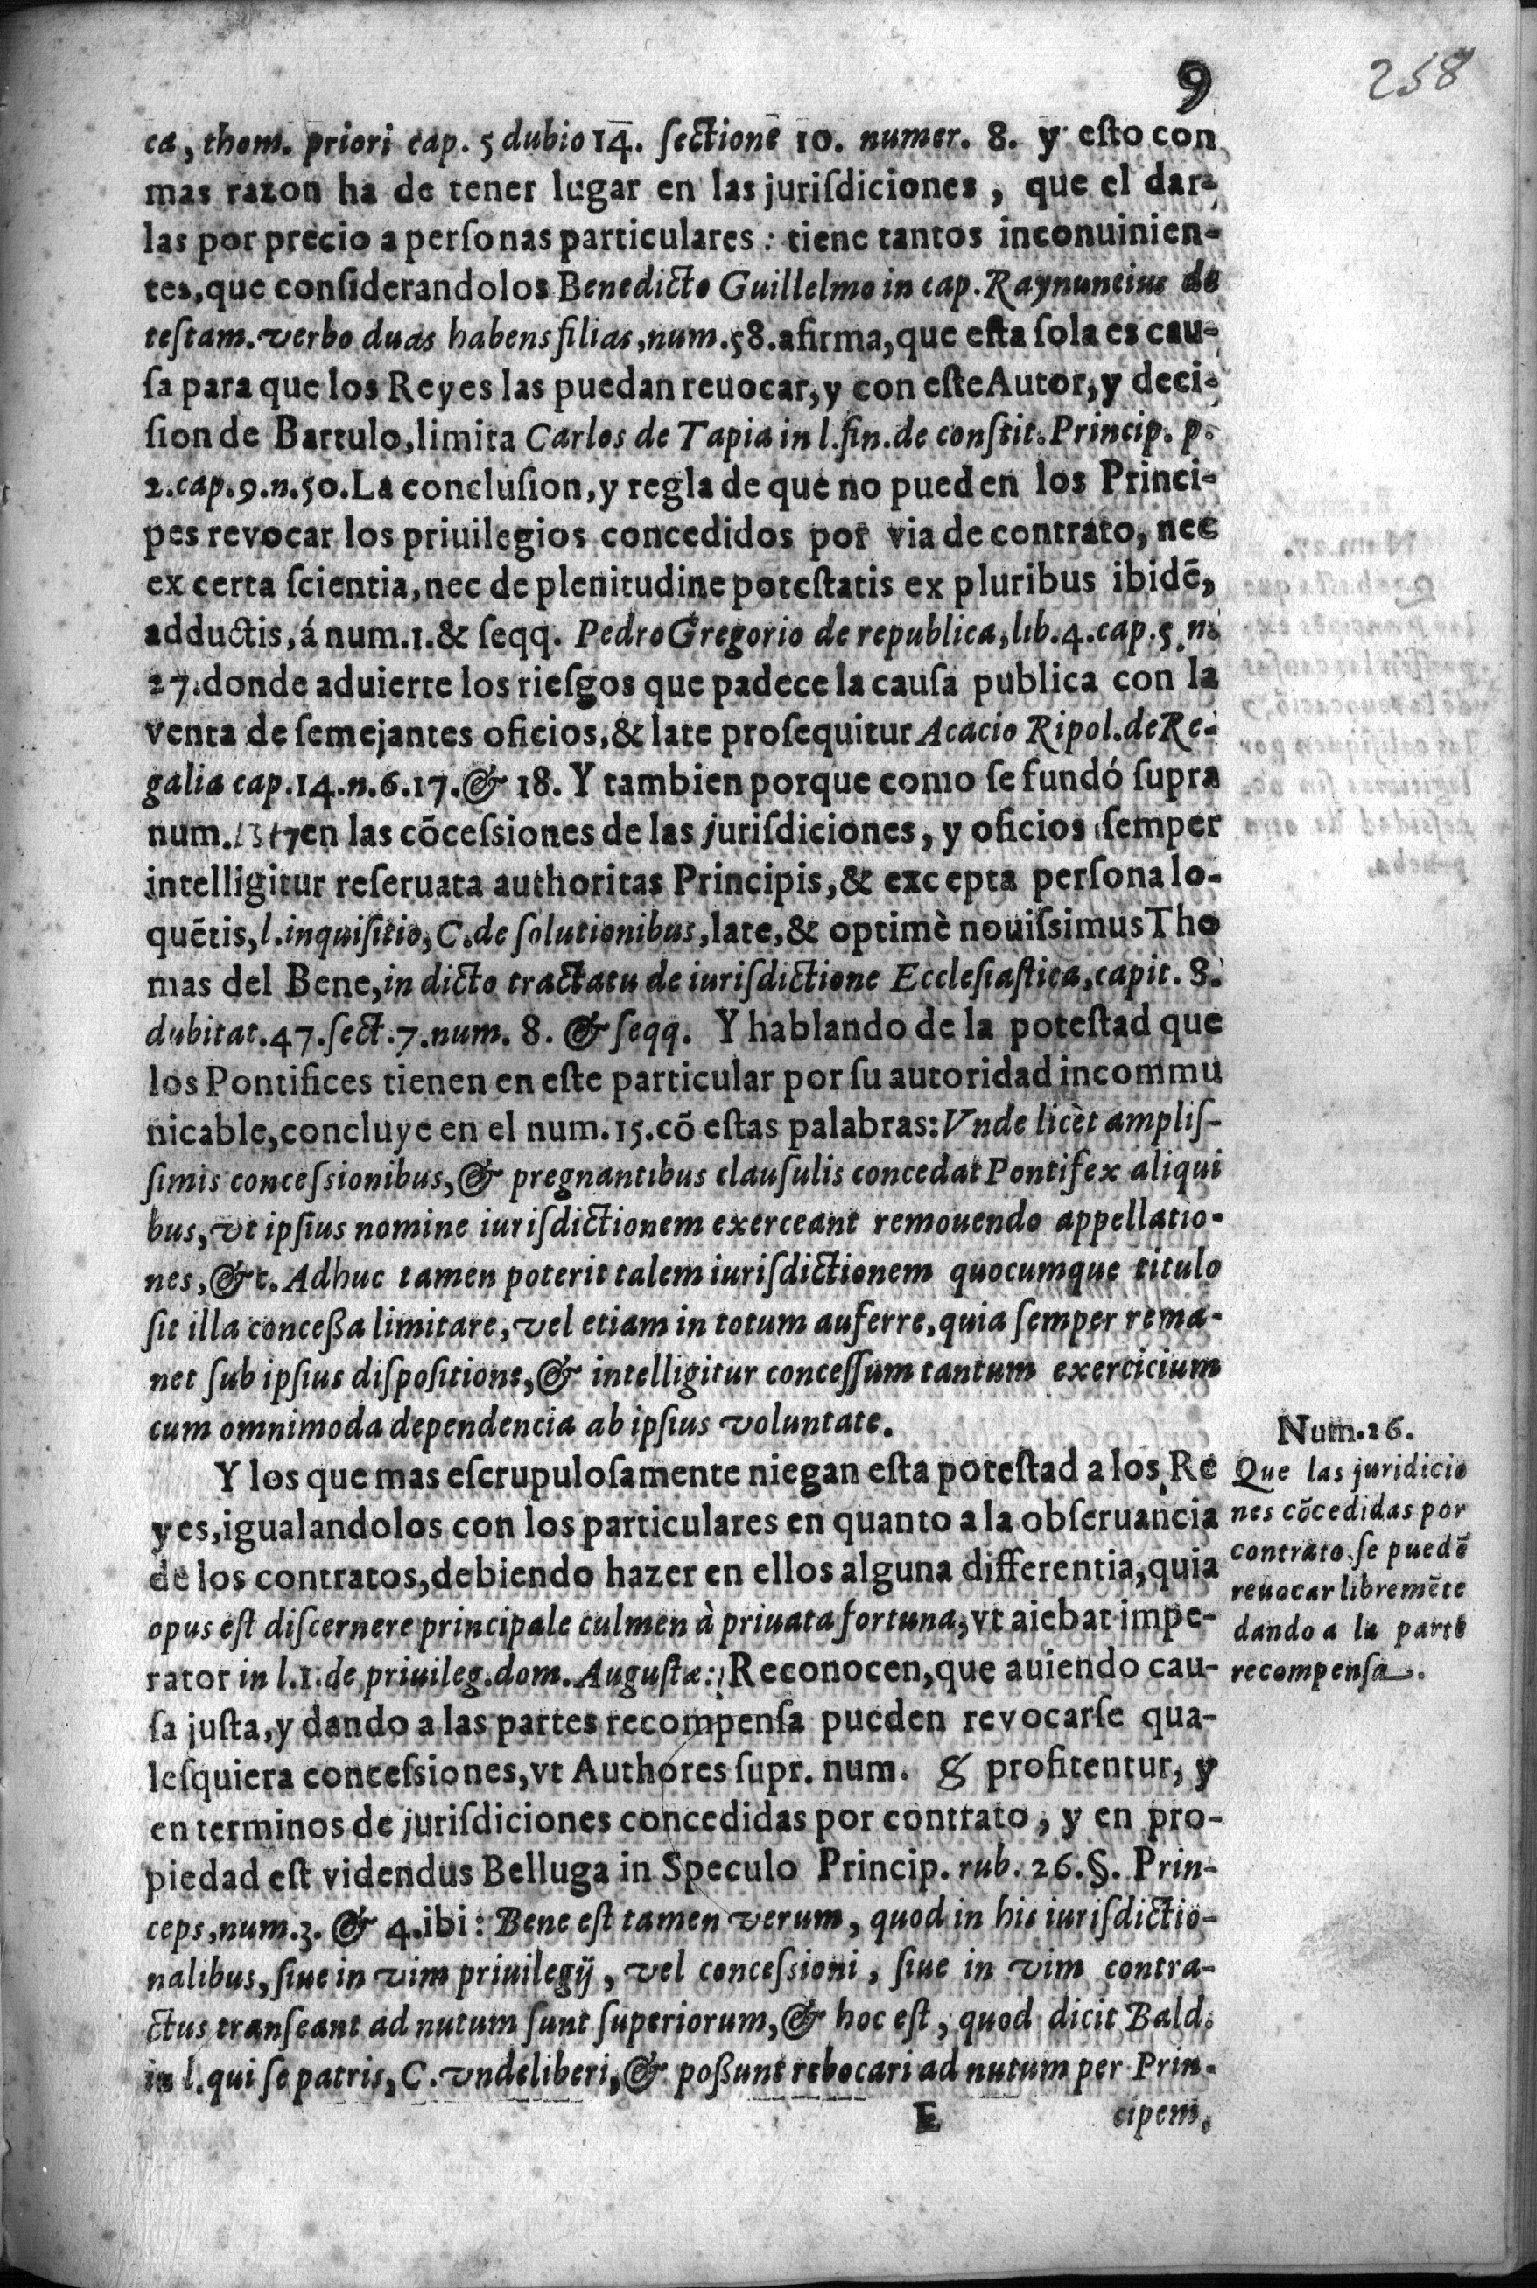 9
258
ca, thom. priori cap. 5 dubio 14. ſectione 10. numer. 8. y eſto con
mas razon ha de tener lugar en las juriſdiciones, que el dar-
las por precio a perſonas particulares: tiene tantos inconuinien-
tes, que conſiderandolos Benedicto Guillelmo in cap. Raynuncius de
teſtam. verbo duas habens filias, num. 58. afirma, que eſta ſola es cau-
ſa para que los Reyes las puedan reuocar, y con eſte Autor, y deci-
ſion de Bartulo, limita Carlos de Tapia in l. fin. de conſtit. Princip. p.
2. cap. 9. n. 50. La concluſion, y regla de que no pueden los Princi-
pes revocar los priuilegios concedidos por via de contrato, nec
ex certa ſcientia, nec de plenitudine poteſtatis ex pluribus ibidē,
adductis, á num. 1. & ſeqq. Pedro Gregorio de republica, lib. 4. cap. 5 n.
27. donde aduierte los rieſgos que padece la cauſa publica con la
venta de ſemejantes oficios, & late proſequitur Acacio Ripol. de Re-
galia cap. 14. n. 6. 17. & 18. Y tambien porque como ſe fundó ſupra
num. en las cōceſsiones de las juriſdiciones, y oficios ſemper
intelligitur reſeruata authoritas Principis, & excepta perſona lo-
quētis, l. inquiſitio, C. de ſolutionibus, late, & optimè nouiſsimus Tho
mas del Bene, in dicto tractatu de iuriſdictione Eccleſiaſtica, capit. 8.
dubitat. 47. ſect. 7. num. 8. & ſeqq. Y hablando de la poteſtad que
los Pontifices tienen en eſte particular por ſu autoridad incommu
nicable, concluye en el num. 15. cō eſtas palabras: Vnde licèt ampliſ-
ſimis conceſsionibus, & pregnantibus clauſulis concedat Pontifex aliqui
bus, vt ipſius nomine iuriſdictionem exerceant remouendo appellatio-
nes, &c. Adhuc tamen poterit talem iuriſdictionem quocumque titulo
ſit illa conceßa limitare, vel etiam in totum auferre, quia ſemper rema-
net ſub ipſius diſpoſitione, & intelligitur conceſſum tantum exercicium
cum omnimoda dependencia ab ipſius voluntate.
Y los que mas eſcrupuloſamente niegan eſta poteſtad a los Re
yes, igualandolos con los particulares en quanto a la obſeruancia
de los contratos, debiendo hazer en ellos alguna differentia, quia
opus eſt diſcernere principale culmen à priuata fortuna, vt aiebat impe-
rator in l. 1. de priuileg. dom. Auguſtæ: Reconocen, que auiendo cau-
ſa juſta, y dando a las partes recompenſa pueden revocarſe qua-
leſquiera conceſsiones, vt Authores ſupr. num. 8 profitentur, y
en terminos de juriſdiciones concedidas por contrato, y en pro-
piedad eſt videndus Belluga in Speculo Princip. rub. 26. §. Prin-
ceps, num. 3. & 4. ibi: Bene eſt tamen verum, quod in his iuriſdictio-
nalibus, ſiue in vim priuilegij, vel conceſsioni, ſiue in vim contra-
ctus tranſeant ad nutum ſunt ſuperiorum, & hoc eſt, quod dicit Bald.
in l. qui ſe patris, C. vndeliberi, & poßunt rebocari ad nutum per Prin-
E cipem,
Num. 26.
Que las juridicio
nes cōcedidas por
contrato ſe puedē
reuocar libremēte
dando a la parte
recompenſa.